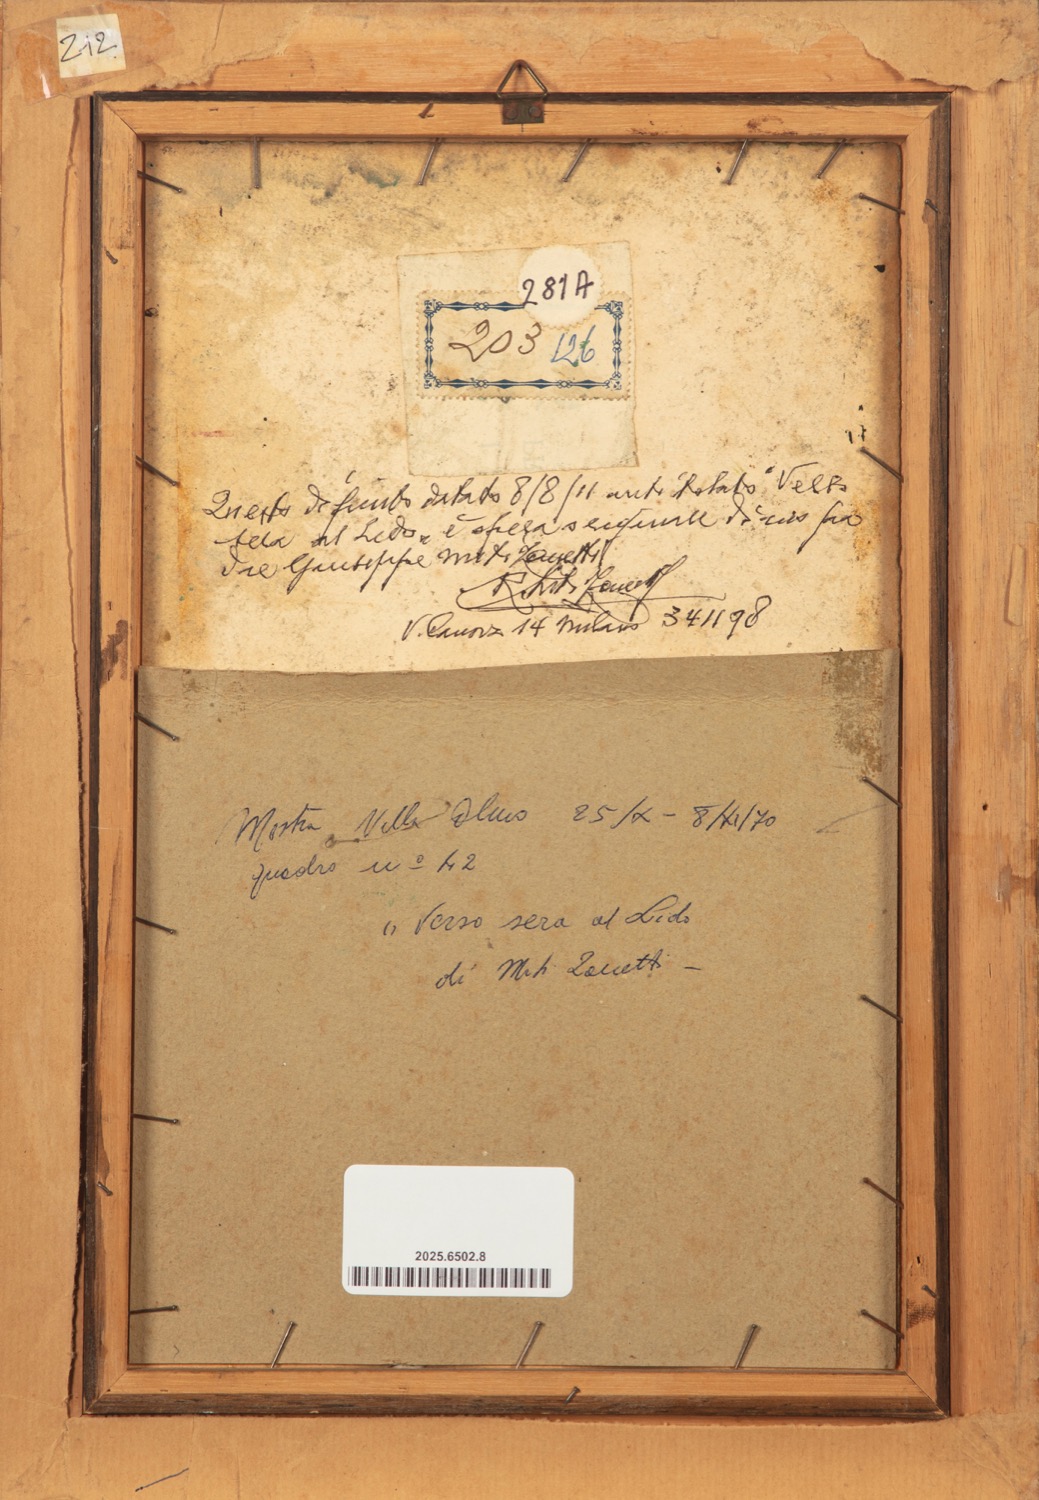 212
281A
203 126
Questo dipinto datato 8/8/11 Verso
sera al Lido, è opera originale di mio pa
dre Giuseppe Miti Zanetti
V. Canova 14 Milano 341198
Mostra Villa Olmo 25/X - 8/XI/70
quadro nº 42
"Verso sera al Lido
di Miti Zanetti -
2025.6502.8